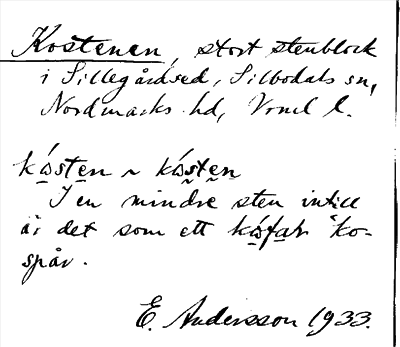 Kostenen, stort stenblock
i Sillegårdsed, Silbodals sn,
Nordmarks hd, Vrml l.
kósten ~ kósten
I en mindre sten intill
är det som ett kófar "ko-
spår.
E. Andersson 1933.